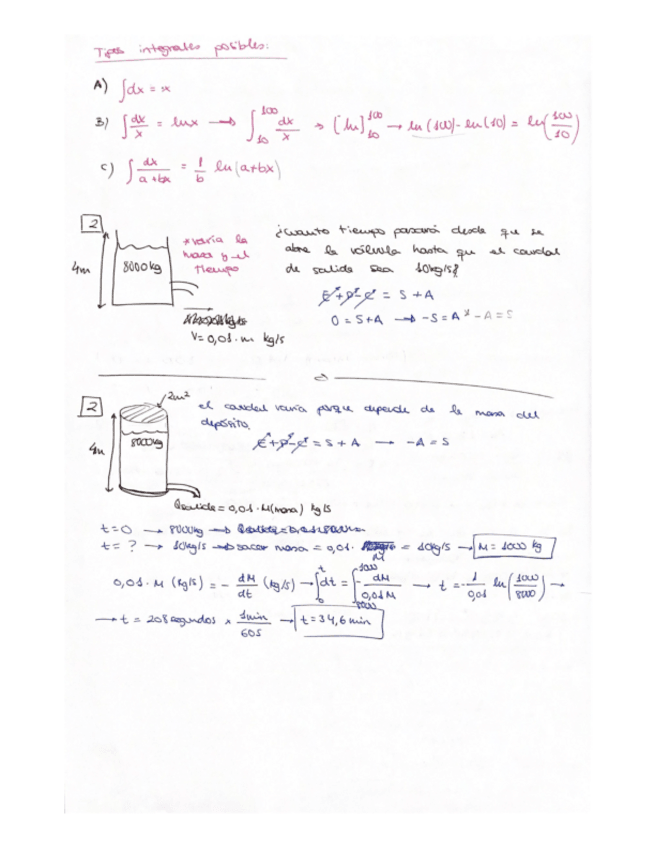 Tipos integrales posibles:
A) ∫dx = x
B) ∫dx/x = lnx → ∫₁₀¹⁰⁰ dx/x → [ln]₁₀¹⁰⁰ → ln(100)-ln(10) = ln(100/10)
C) ∫dx/(a+bx) = 1/b ln(a+bx)
2
4m
8000kg
*varía la masa y el tiempo
¿Cuanto tiempo pasará desde que se
abre la válvula hasta que el caudal
de salida sea 10kg/s?
E+P-C = S+A
0 = S+A → -S=A * -A=S
V=0,01·m kg/s
2
2m²
4m
8000kg
el caudal varía porque depende de la masa del
depósito.
E+P-C = S+A → -A=S
Qsalida = 0,01·M(masa) kg/s
t=0 → 8000kg →
t=? → 10kg/s → sacar masa = 0,01· M = 10kg/s → M = 1000 kg
0,01·M (kg/s) = - dM/dt (kg/s) → ∫₀ᵗdt = ∫₈₀₀₀¹⁰⁰⁰ - dM/0,01M → t = -1/0,01 ln(1000/8000) →
→ t = 208 segundos x 1min/60s → t=34,6 min